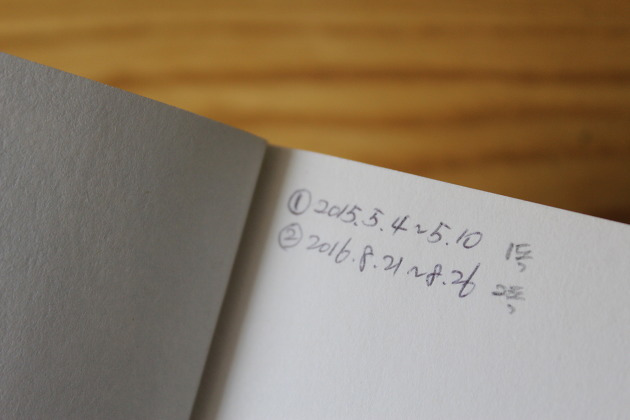 ① 2015.5.4~5.10 1독
② 2016.8.21~8.26 2독